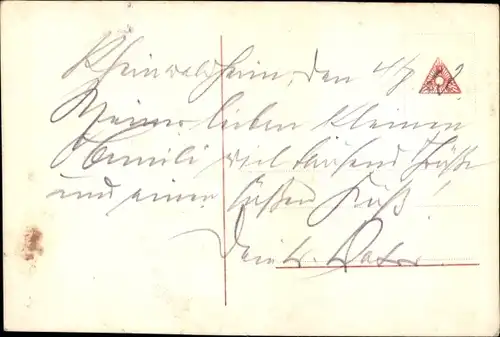 Rheinwaldheim, den 4/7
Meiner lieben kleinen
Emili viel tausend Grüße
und einen süßen Kuß!
Dein tr. Vater.